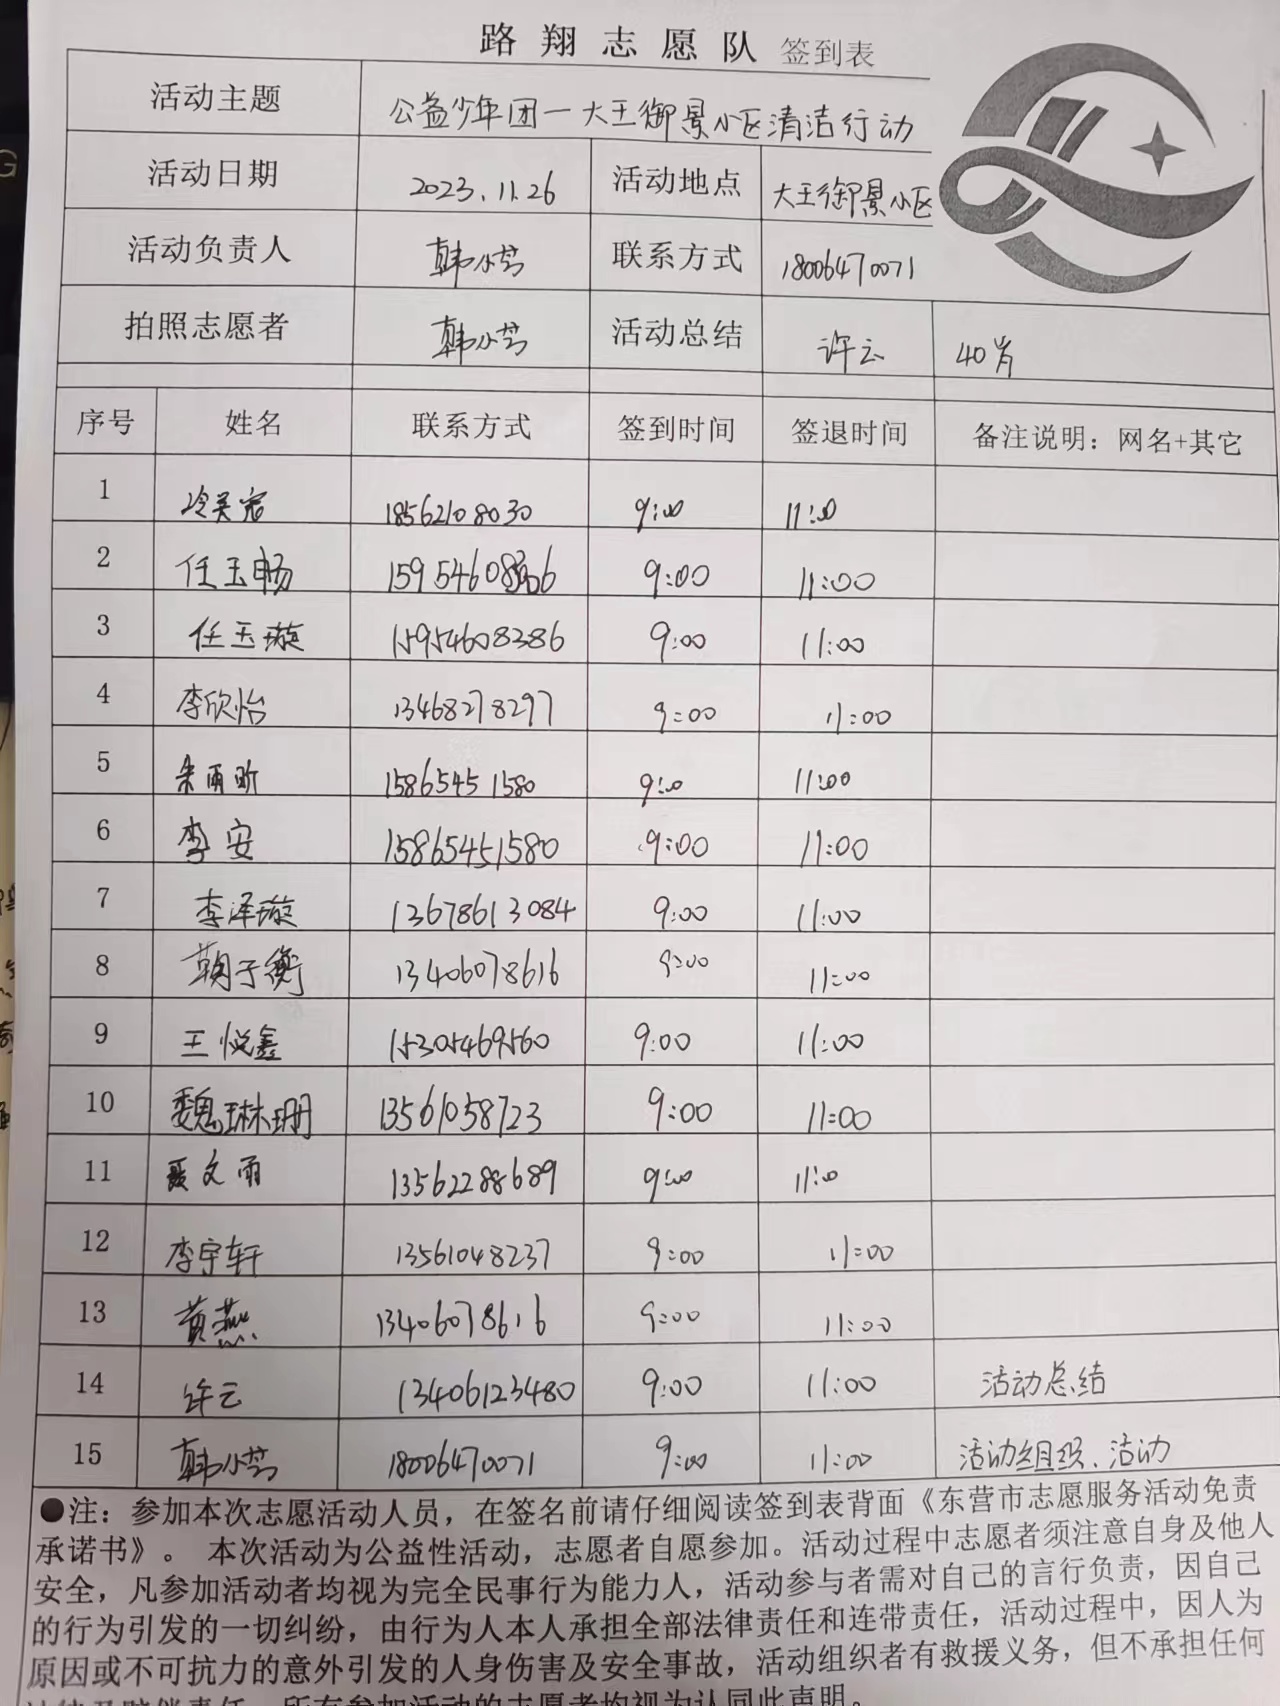 路翔志愿队 签到表
活动主题 公益少年团一大王御景小区清洁行动
活动日期 2023.11.26 活动地点 大王御景小区
活动负责人 韩小芳 联系方式 18006470071
拍照志愿者 韩小芳 活动总结 许云 40岁
序号 姓名 联系方式 签到时间 签退时间 备注说明：网名+其它
1 18562108030 9:00 11:00
2 任玉畅 9:00 11:00
3 任玉璇 15954608386 9:00 11:00
4 李欣怡 13468278297 9:00 11:00
5 朱雨昕 15865451580 9:00 11:00
6 李安 15865451580 9:00 11:00
7 李泽璇 13678613084 9:00 11:00
8 子衡 13406078616 9:00 11:00
9 王悦鑫 15305469560 9:00 11:00
10 魏琳珊 13561058723 9:00 11:00
11 聂文雨 13562288689 9:00 11:00
12 李宇轩 13561048237 9:00 11:00
13 黄燕 13406078616 9:00 11:00
14 许云 13406123480 9:00 11:00 活动总结
15 韩小芳 18006470071 9:00 11:00 活动组织、活动
●注：参加本次志愿活动人员，在签名前请仔细阅读签到表背面《东营市志愿服务活动免责
承诺书》。 本次活动为公益性活动，志愿者自愿参加。活动过程中志愿者须注意自身及他人
安全，凡参加活动者均视为完全民事行为能力人，活动参与者需对自己的言行负责，因自己
的行为引发的一切纠纷，由行为人本人承担全部法律责任和连带责任，活动过程中，因人为
原因或不可抗力的意外引发的人身伤害及安全事故，活动组织者有救援义务，但不承担任何
法律及赔偿责任。所有参加活动的志愿者均视为认同此声明。